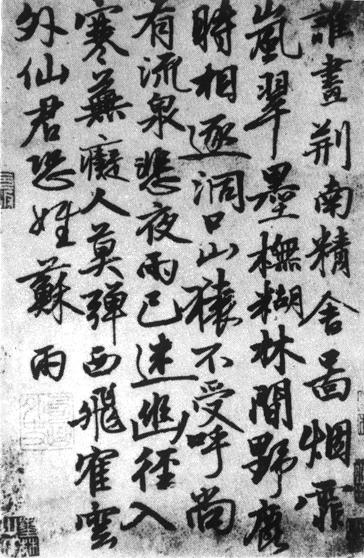 誰畫荆南精舍啚烟霏
嵐翠墨橅糊林間野鹿
時相逐洞口山猿不受呼尚
有流泉悲夜雨已迷幽徑入
寒蕪癡人莫彈西飛隺雲
外仙君恐姓蘇 雨